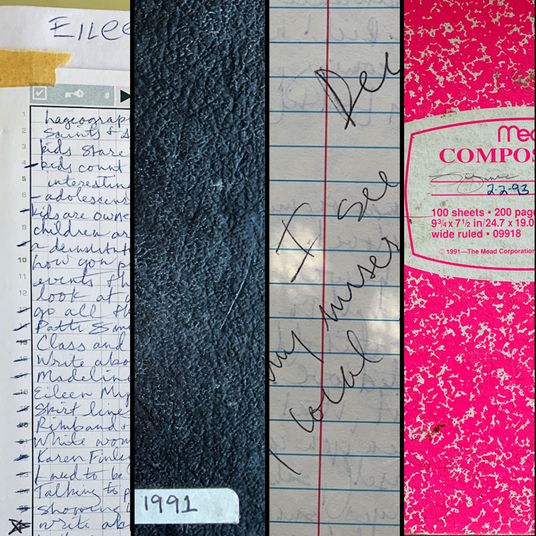 EILEE
hageograph
Saints + s
kids stare
kids count
interestin
adolescens
kids are owne
children ar
a demonstrat
how you p
events th
look at a
go all th
Patti Smi
Class and
Write abo
Madeline
Eileen My
Skirt line
Rimbaud +
White wom
Karen Finle
I used to be
Talking to p
shopping
write abo
1991
Dec
I see
my muses
local
Mea
COMPOS
2-2-93
100 sheets • 200 page
9¾ x 7½ in/24.7 x 19.0
wide ruled • 09918
© 1991—The Mead Corporation